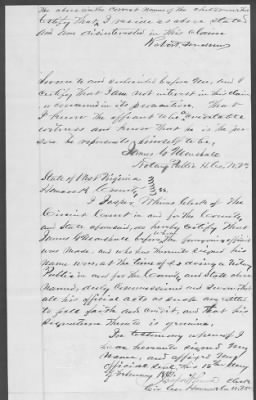 the above are the correct names of the children &
Certify that I reside as above stated
and am disinterested in this claim
Robert
Sworn to and subscribed before me, and I
certify that I am not interest in his claim
or concerned in its prosecution. That
I know the affiant who is a creditable
witness and know that he is the per-
son he represents himself to be,
James G Marshall
Notary Public H. Co. W. Va
State of West Virginia
Hancock County } SS
I Clerk of The
Circuit Court in and for the County
and State aforesaid, do hereby Certify that
James G Marshall before whom the foregoing affidavit
was made, and who has thereunto signed his
name was at the time of so doing a Notary
Public in and for the County and State above
Named, duly Commissioned and sworn that
all his official acts as such are entitled
to full faith and credit, and that his
signature thereto is genuine.
In testimony whereof I
have hereunto signed my
Name, and affixed my
Official seal this 15th day
of February
Clerk
Cir Co Hancock Co W. Va